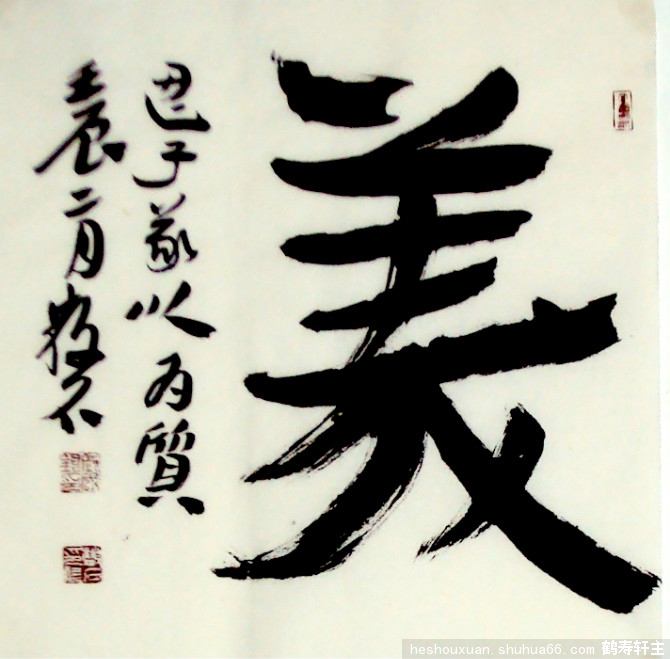 義
君子義以为質
壬辰二月
heshouxuan.shuhua66.com 鹤寿轩主